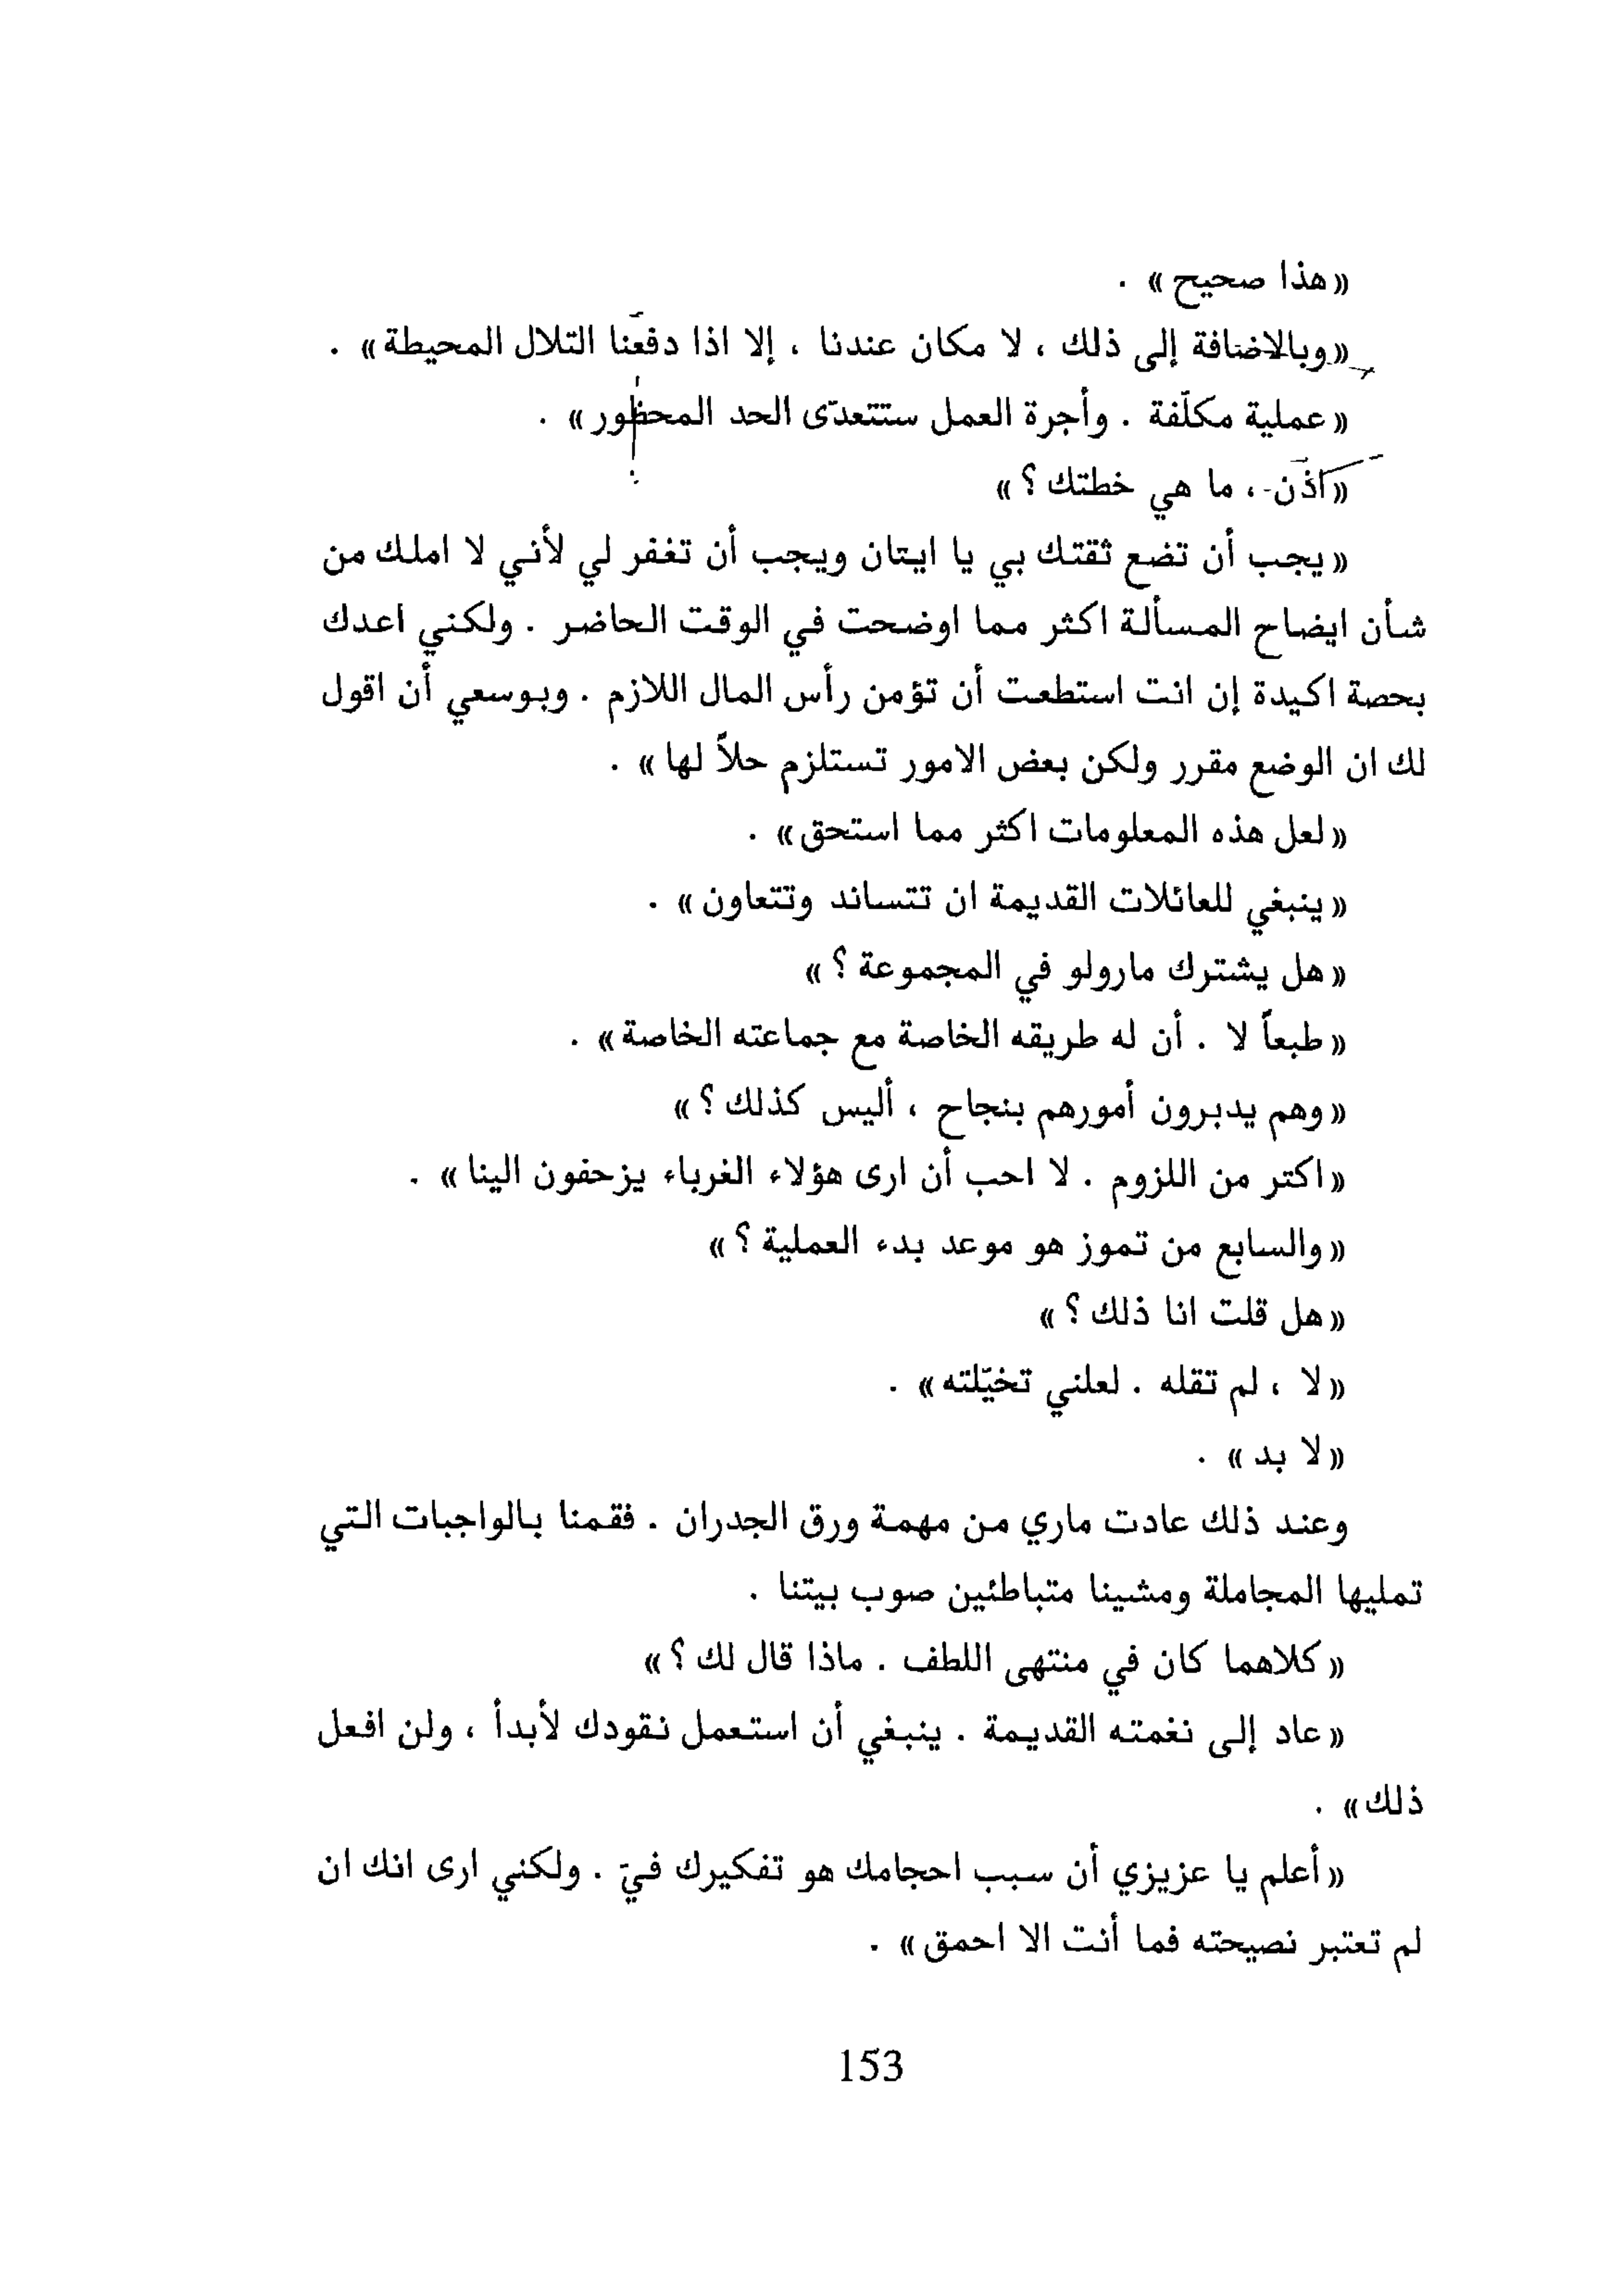 «هذا صحيح» .
«وبالاضافة إلى ذلك ، لا مكان عندنا ، إلا اذا دفعنا التلال المحيطة» .
«عملية مكلّفة . وأجرة العمل ستتعدّى الحد المحظور» .
«اذن ، ما هي خطتك ؟»
«يجب أن تضع ثقتك بي يا ايتان ويجب أن تغفر لي لأني لا املك من
شأن ايضاح المسألة اكثر مما اوضحت في الوقت الحاضر . ولكني اعدك
بحصة اكيدة إن انت استطعت أن تؤمن رأس المال اللازم . وبوسعي أن اقول
لك ان الوضع مقرر ولكن بعض الامور تستلزم حلاً لها» .
«لعل هذه المعلومات اكثر مما استحق» .
«ينبغي للعائلات القديمة ان تتساند وتتعاون» .
«هل يشترك مارولو في المجموعة ؟»
«طبعاً لا . أن له طريقه الخاصة مع جماعته الخاصة» .
«وهم يدبرون أمورهم بنجاح ، أليس كذلك ؟»
«اكتر من اللزوم . لا احب أن ارى هؤلاء الغرباء يزحفون الينا» .
«والسابع من تموز هو موعد بدء العملية ؟»
«هل قلت انا ذلك ؟»
«لا ، لم تقله . لعلني تخيّلته» .
«لا بد» .
وعند ذلك عادت ماري من مهمة ورق الجدران . فقمنا بالواجبات التي
تمليها المجاملة ومشينا متباطئين صوب بيتنا .
«كلاهما كان في منتهى اللطف . ماذا قال لك ؟»
«عاد إلى نغمته القديمة . ينبغي أن استعمل نقودك لأبدأ ، ولن افعل
ذلك» .
«أعلم يا عزيزي أن سبب احجامك هو تفكيرك فيّ . ولكني ارى انك ان
لم تعتبر نصيحته فما أنت الا احمق» .
153